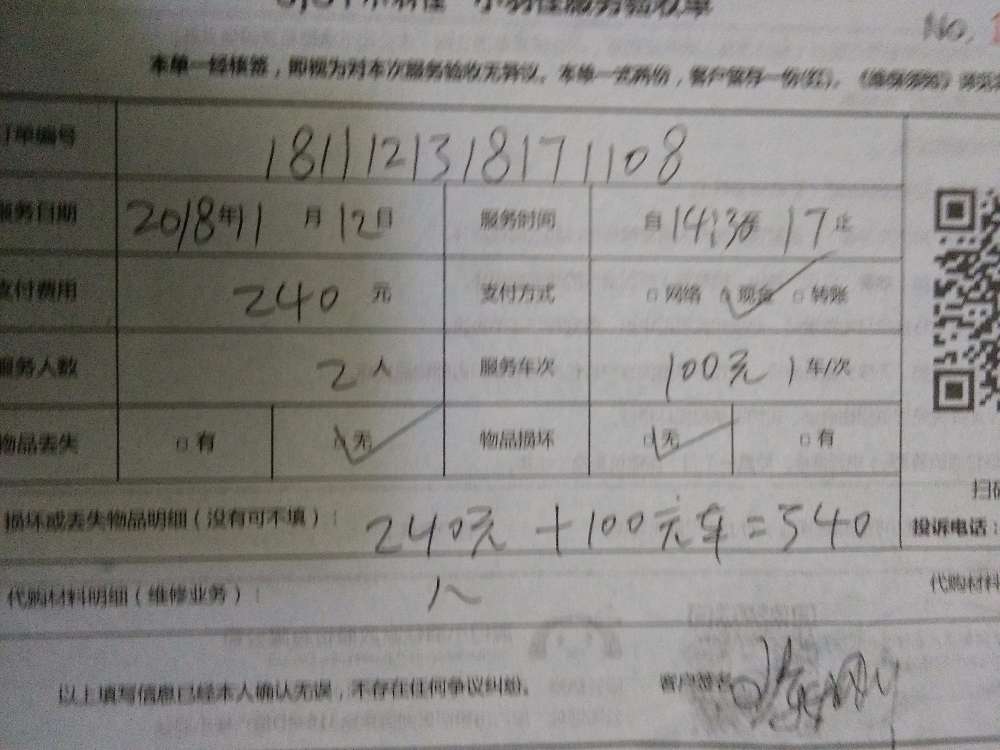 小羽佳服务验收单
No.
本单一经核签，即视为对本次服务验收无争议。本单一式两份，客户留存一份(红)。
订单编号 1811121318171108
服务日期 2018年11月12日 服务时间 自14:30至17止
支付费用 240元 支付方式 □网络 □现金 □转账
服务人数 2人 服务车次 100元1车/次
物品丢失 □有 □无 物品损坏 □无 □有
损坏或丢失物品明细（没有可不填）： 240元+100元车=340
投诉电话：
代购材料明细（维修业务）：
代购材料
以上填写信息已经本人确认无误，不存在任何争议纠纷。 客户签名